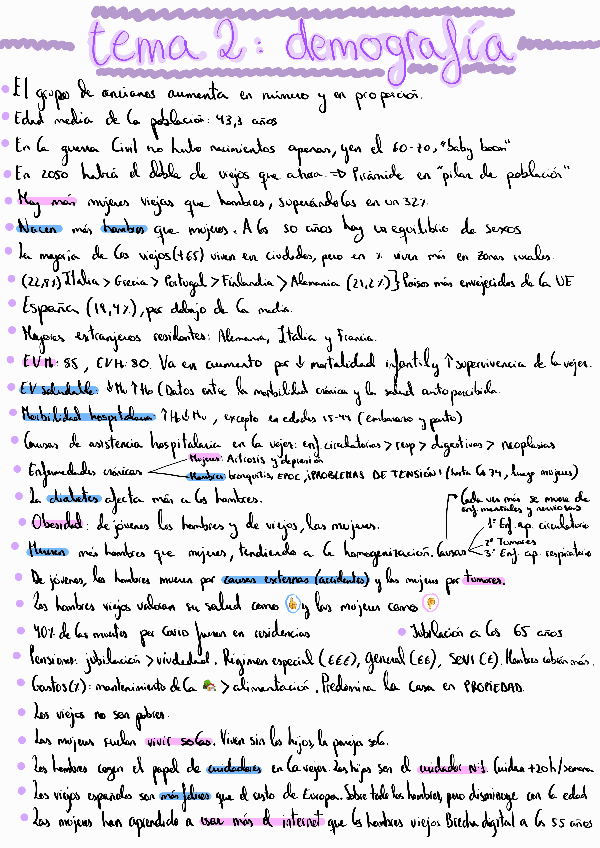 tema 2: demografía
El grupo de ancianos aumenta en número y en proporción.
Edad media de la población: 43,3 años
En la guerra Civil no hubo nacimientos apenas, y en el 60-70, "baby boom"
En 2050 habrá el doble de viejos que ahora. => Pirámide en "pilar de población"
Hay más mujeres viejas que hombres, superándolas en un 32%.
Nacen más hombres que mujeres. A los 50 años hay un equilibrio de sexos
La mayoría de los viejos (+65) viven en ciudades, pero en % viven más en zonas rurales.
(22,8%) Italia > Grecia > Portugal > Finlandia > Alemania (21,2%)} Países más envejecidos de la UE
España (19,4%), por debajo de la media.
Mayores extranjeros residentes: Alemania, Italia y Francia.
EVM: 85, EVH: 80. Va en aumento por ↓ mortalidad infantil y ↑ supervivencia de la vejez.
EV saludable: ↓Mu ↑Ho (Datos entre la morbilidad crónica y la salud autopercibida.
Morbilidad hospitalaria ↑Ho ↓Mu, excepto en edades 15-44 (embarazo y parto)
Causas de asistencia hospitalaria en la vejez: enf circulatorias > resp > digestivos > neoplasias
Enfermedades crónicas
Mujeres: Artrosis y depresión
Hombres bronquitis, EPOC, ¡PROBLEMAS DE TENSIÓN! (hasta los 74, luego mujeres)
La diabetes afecta más a los hombres.
Obesidad: de jóvenes los hombres y de viejos, las mujeres.
Cada vez más se muere de enf mentales y nerviosas
Mueren más hombres que mujeres, tendiendo a la homogenización. Causas
1º Enf. ap. circulatorio
2º Tumores
3º Enf. ap. respiratorio
De jóvenes, los hombres mueren por causas externas (accidentes) y las mujeres por tumores.
Los hombres viejos valoran su salud como 👍 y las mujeres como 👎
40% de las muertes por Covid fueron en residencias
Jubilación a los 65 años
Pensiones: jubilación > viudedad. Régimen especial (€€€), general (€€), SOVI (€). Hombres cobran más.
Gastos (%): mantenimiento de la 🏠 > alimentación. Predomina la casa en PROPIEDAD.
Los viejos no son pobres.
Las mujeres suelen vivir solas. Viven sin los hijos, la pareja sola.
Los hombres cogen el papel de cuidadores en la vejez. Las hijas son el cuidador Nº1. Cuidan +20h/semana
Los viejos españoles son más felices que el resto de Europa. Sobre todo los hombres, pero disminuye con la edad
Las mujeres han aprendido a usar más el internet que los hombres viejos. Brecha digital a los 55 años